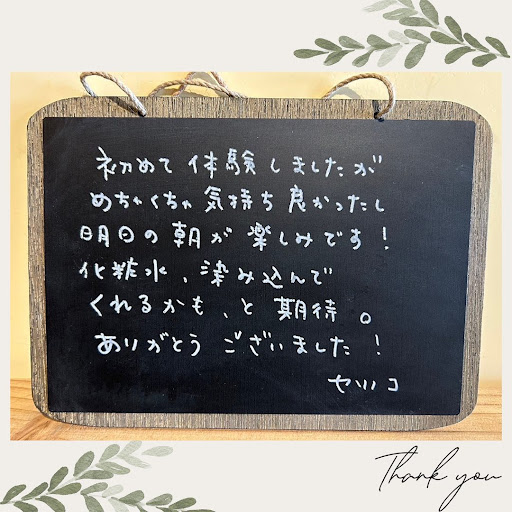 初めて体験しましたが
めちゃくちゃ気持ち良かったし
明日の朝が楽しみです！
化粧水、染み込んで
くれるかも、と期待。
ありがとうございました！
セツコ
Thank you